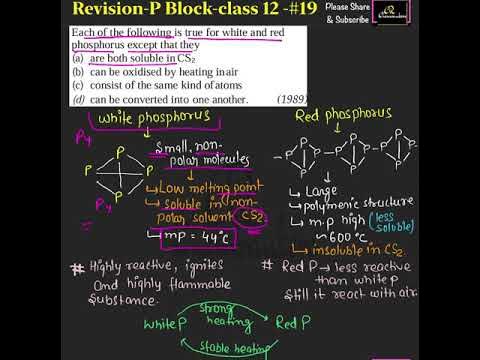 Revision-P Block-class 12 -#19
Please Share
& Subscribe
Each of the following is true for white and red
phosphorus except that they
(a) are both soluble in CS₂
(b) can be oxidised by heating in air
(c) consist of the same kind of atoms
(d) can be converted into one another. (1989)
white phosphorus
P₄
P
P
P
P
P₄
=
Small, non-
polar molecules
↳ Low melting point
↳ soluble in non-
polar solvent CS₂
↳ mp = 44°C
Red phosphorus
P
P
P
P
P
P
P
P
P
P
P
P
↳ Large
↳ polymeric structure
↳ m.p high (less
soluble)
~600°C
↳ insoluble in CS₂
# Highly reactive, ignites
and highly flammable
substance.
# Red P → less reactive
than white P
Still it react with air.
strong
heating
White P
Red P
stable heating